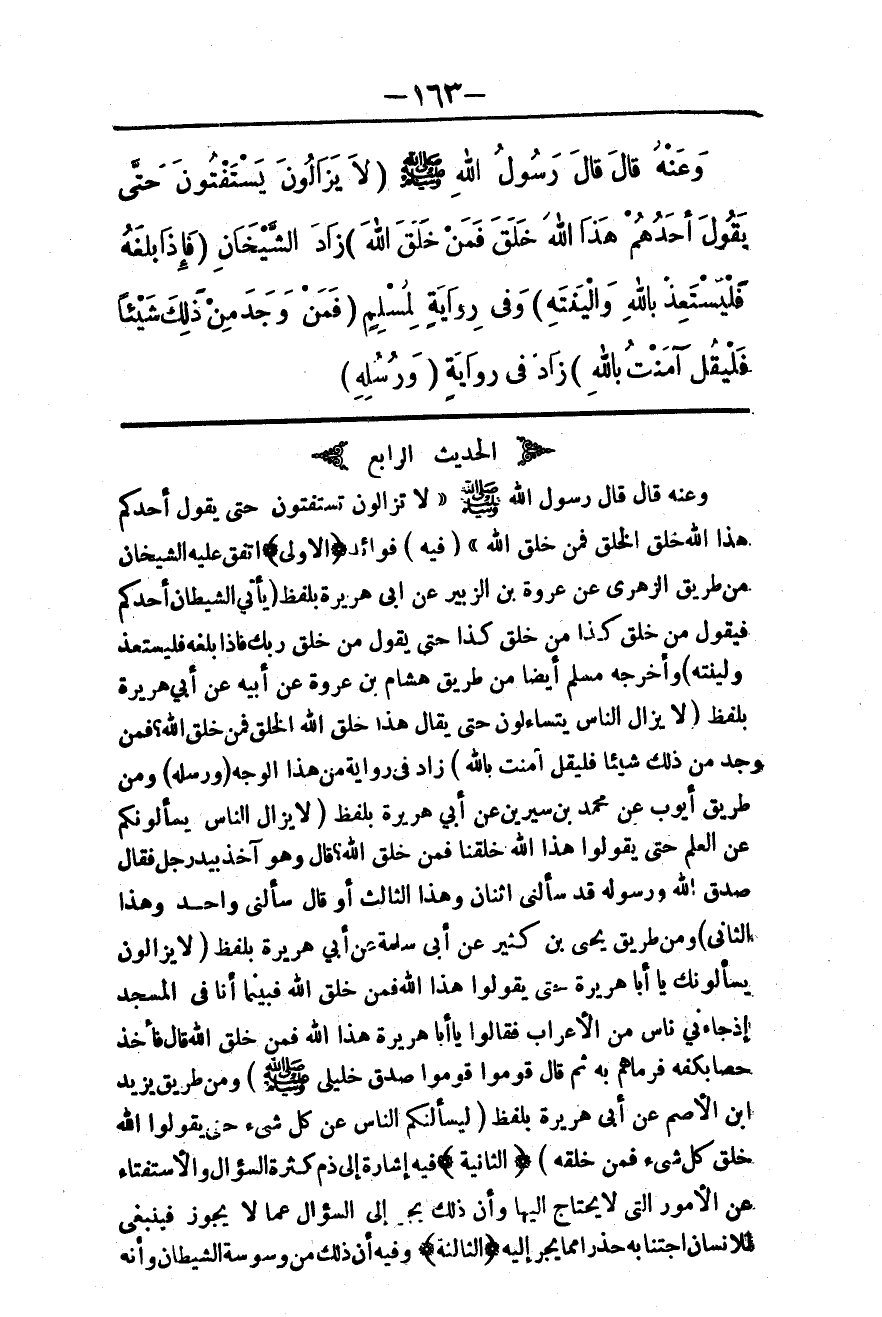 — ١٦٣ —
وَعَنْهُ قَالَ قَالَ رَسُولُ اللهِ ﷺ ( لاَ يَزَالُونَ يَسْتَفْتُونَ حَتَّى
يَقُولَ أَحَدُهُمْ هَذَا اللهُ خَلَقَ فَمَنْ خَلَقَ اللهَ ) زَادَ الشَّيْخَانِ ( فَإِذَا بَلَغَهُ
فَلْيَسْتَعِذْ بِاللهِ وَالْيَنْتَهِ ) وَفِى رِوَايَةٍ لِمُسْلِمٍ ( فَمَنْ وَجَدَ مِنْ ذَلِكَ شَيْئاً
فَلْيَقُلْ آمَنْتُ بِاللهِ ) زَادَ فِى رِوَايَةٍ ( وَرُسُلِهِ )
الحديث الرابع
وعنه قال قال رسول الله ﷺ « لا تزالون تستفتون حتى يقول أحدكم
هذا الله خلق الخلق فمن خلق الله » ( فيه ) فوائد ﴿الاولى﴾ اتفق عليه الشيخان
من طريق الزهرى عن عروة بن الزبير عن ابى هريرة بلفظ ( يأتي الشيطان أحدكم
فيقول من خلق كذا من خلق كذا حتى يقول من خلق ربك فاذا بلغه فليستعذ
ولينته ) وأخرجه مسلم أيضا من طريق هشام بن عروة عن أبيه عن أبي هريرة
بلفظ ( لا يزال الناس يتساءلون حتى يقال هذا خلق الله الخلق فمن خلق الله؟ فمن
وجد من ذلك شيئا فليقل آمنت بالله ) زاد فى رواية من هذا الوجه ( ورسله ) ومن
طريق أيوب عن محمد بن سيرين عن أبي هريرة بلفظ ( لا يزال الناس يسألونكم
عن العلم حتى يقولوا هذا الله خلقنا فمن خلق الله؟ قال وهو آخذ بيد رجل فقال
صدق الله ورسوله قد سألنى اثنان وهذا الثالث أو قال سألنى واحد وهذا
الثانى ) ومن طريق يحيى بن كثير عن أبى سلمة عن أبي هريرة بلفظ ( لا يزالون
يسألونك يا أبا هريرة حتى يقولوا هذا الله فمن خلق الله فبينما أنا فى المسجد
إذ جاءني ناس من الأعراب فقالوا يا أبا هريرة هذا الله فمن خلق الله قال فأخذ
حصا بكفه فرماهم به ثم قال قوموا قوموا صدق خليلى ﷺ ) ومن طريق يزيد
ابن الأصم عن أبى هريرة بلفظ ( ليسألنكم الناس عن كل شىء حتى يقولوا الله
خلق كل شىء فمن خلقه ) ﴿ الثانية ﴾ فيه إشارة إلى ذم كثرة السؤال والاستفتاء
عن الأمور التى لا يحتاج اليها وأن ذلك يجر إلى السؤال عما لا يجوز فينبغى
للانسان اجتنابه حذرا مما يجر إليه ﴿الثالثة﴾ وفيه أن ذلك من وسوسة الشيطان وأنه